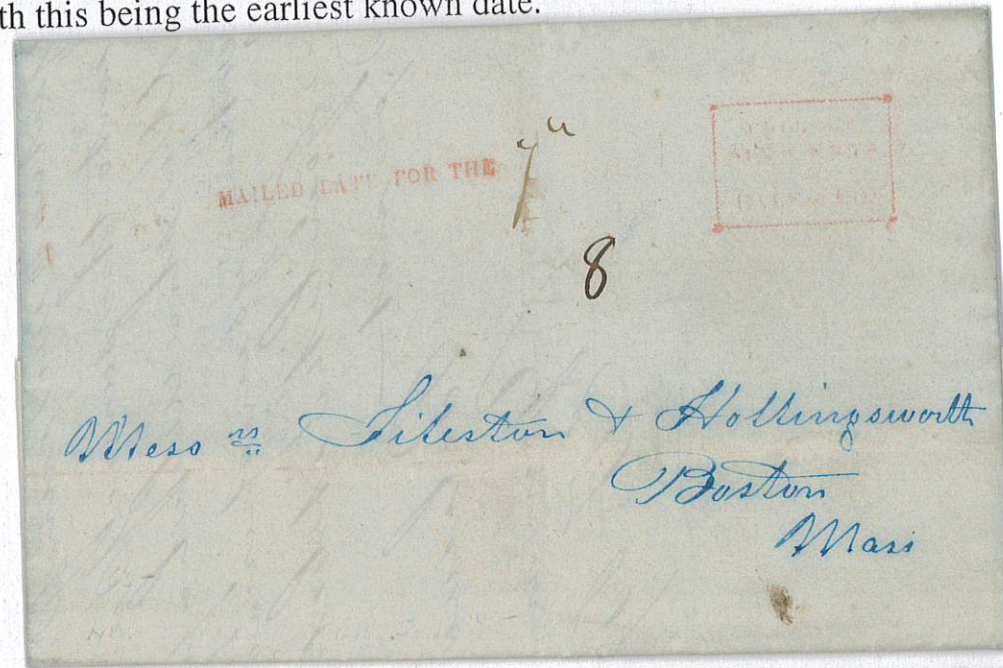 th this being the earliest known date.
MAILED LATE FOR THE
HALE & CO
8
Messrs Tileston & Hollingsworth
Boston
Mass